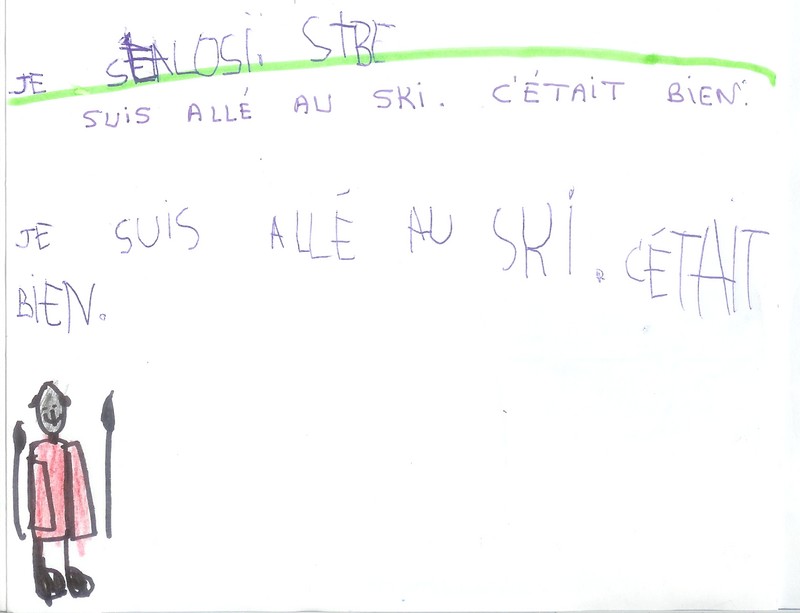 JE SEALOSi. STBE
SUIS ALLÉ AU SKI. C'ÉTAIT BIEN.
JE SUIS ALLÉ AU SKI. C'ÉTAIT
BIEN.